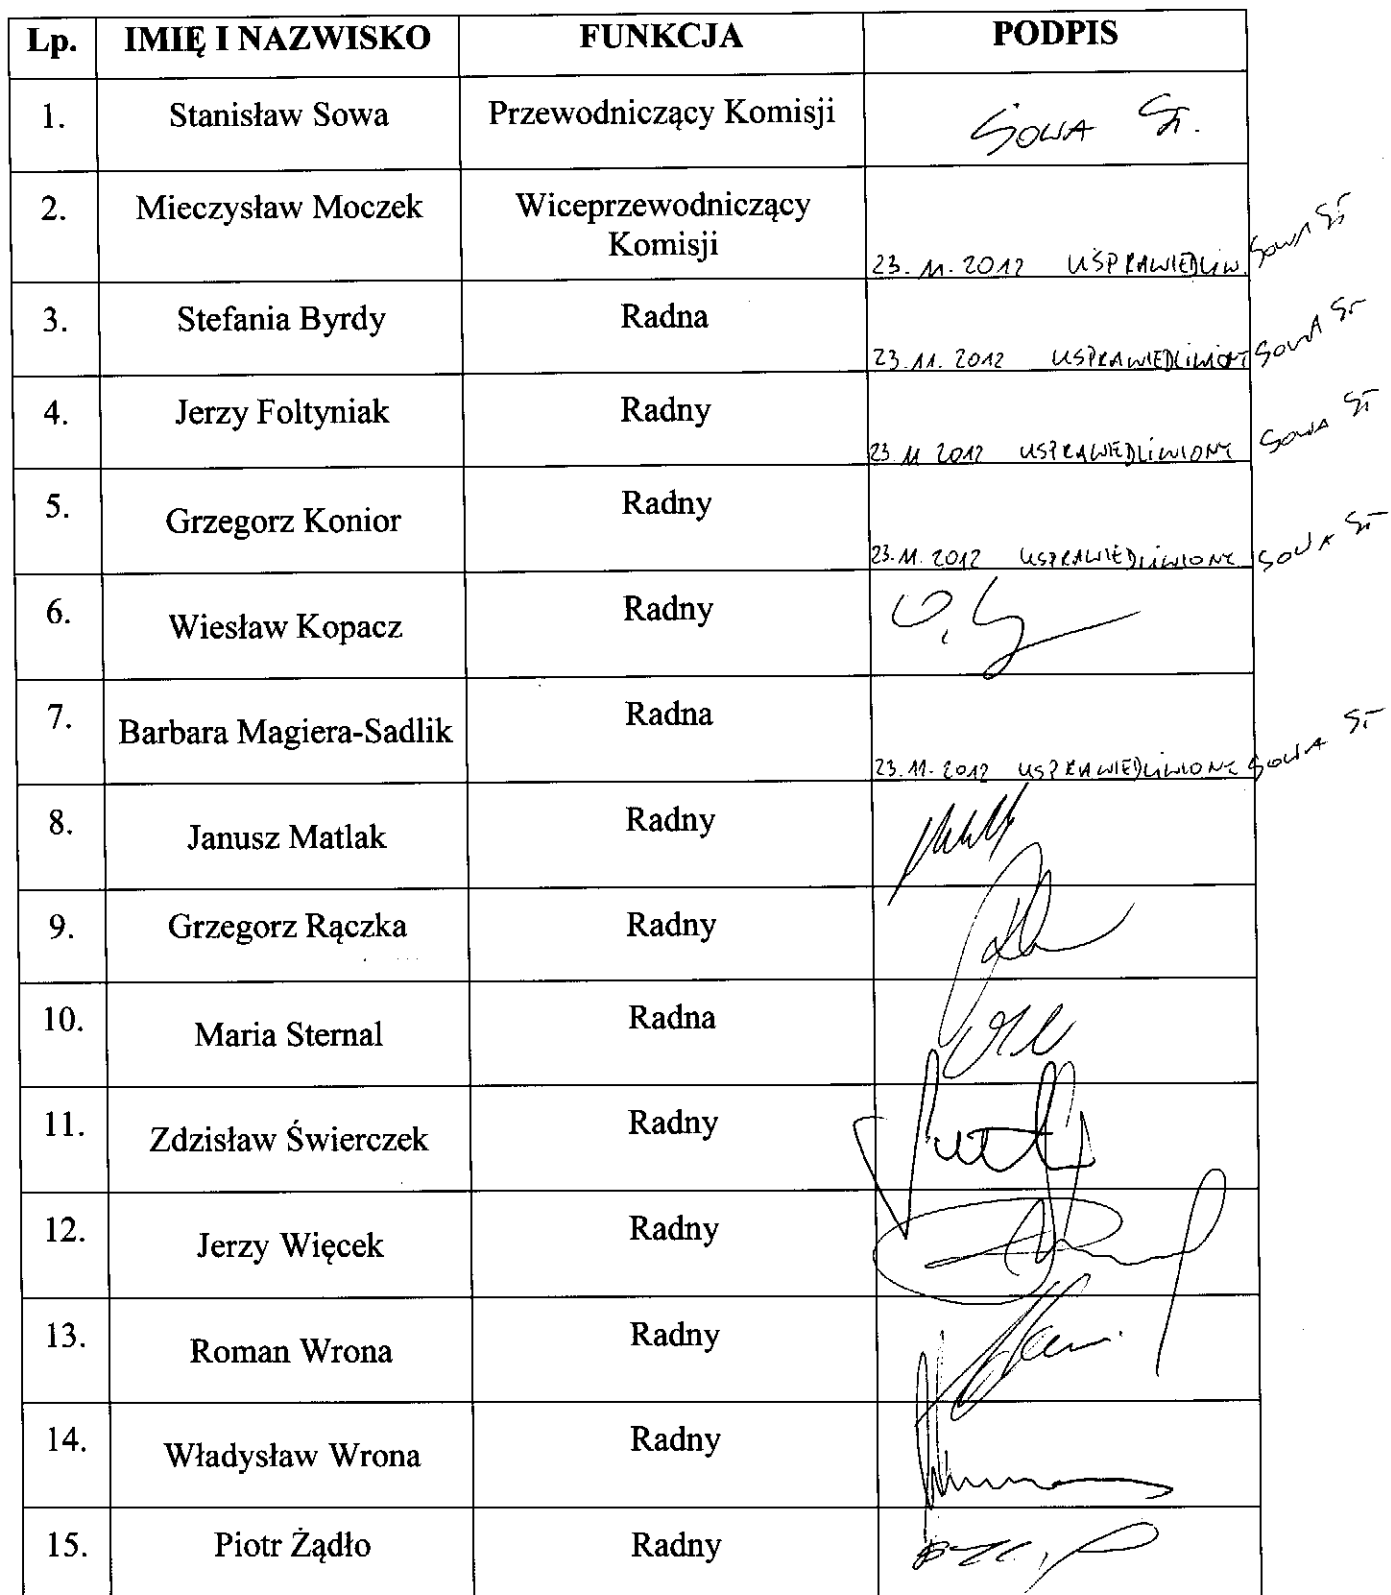 Lp. IMIĘ I NAZWISKO FUNKCJA PODPIS
1. Stanisław Sowa Przewodniczący Komisji SOWA St.
2. Mieczysław Moczek Wiceprzewodniczący
Komisji
23.11.2012 USPRAWIEDLIW. SOWA St
3. Stefania Byrdy Radna
23.11.2012 SOWA St
4. Jerzy Foltyniak Radny
23.11 2012 USPRAWIEDLIWIONY SOWA St
5. Grzegorz Konior Radny
23.11.2012 USPRAWIEDLIWIONY SOWA St
6. Wiesław Kopacz Radny
7. Barbara Magiera-Sadlik Radna
23.11.2012 USPRAWIEDLIWIONY SOWA St
8. Janusz Matlak Radny
9. Grzegorz Rączka Radny
10. Maria Sternal Radna
11. Zdzisław Świerczek Radny
12. Jerzy Więcek Radny
13. Roman Wrona Radny
14. Władysław Wrona Radny
15. Piotr Żądło Radny